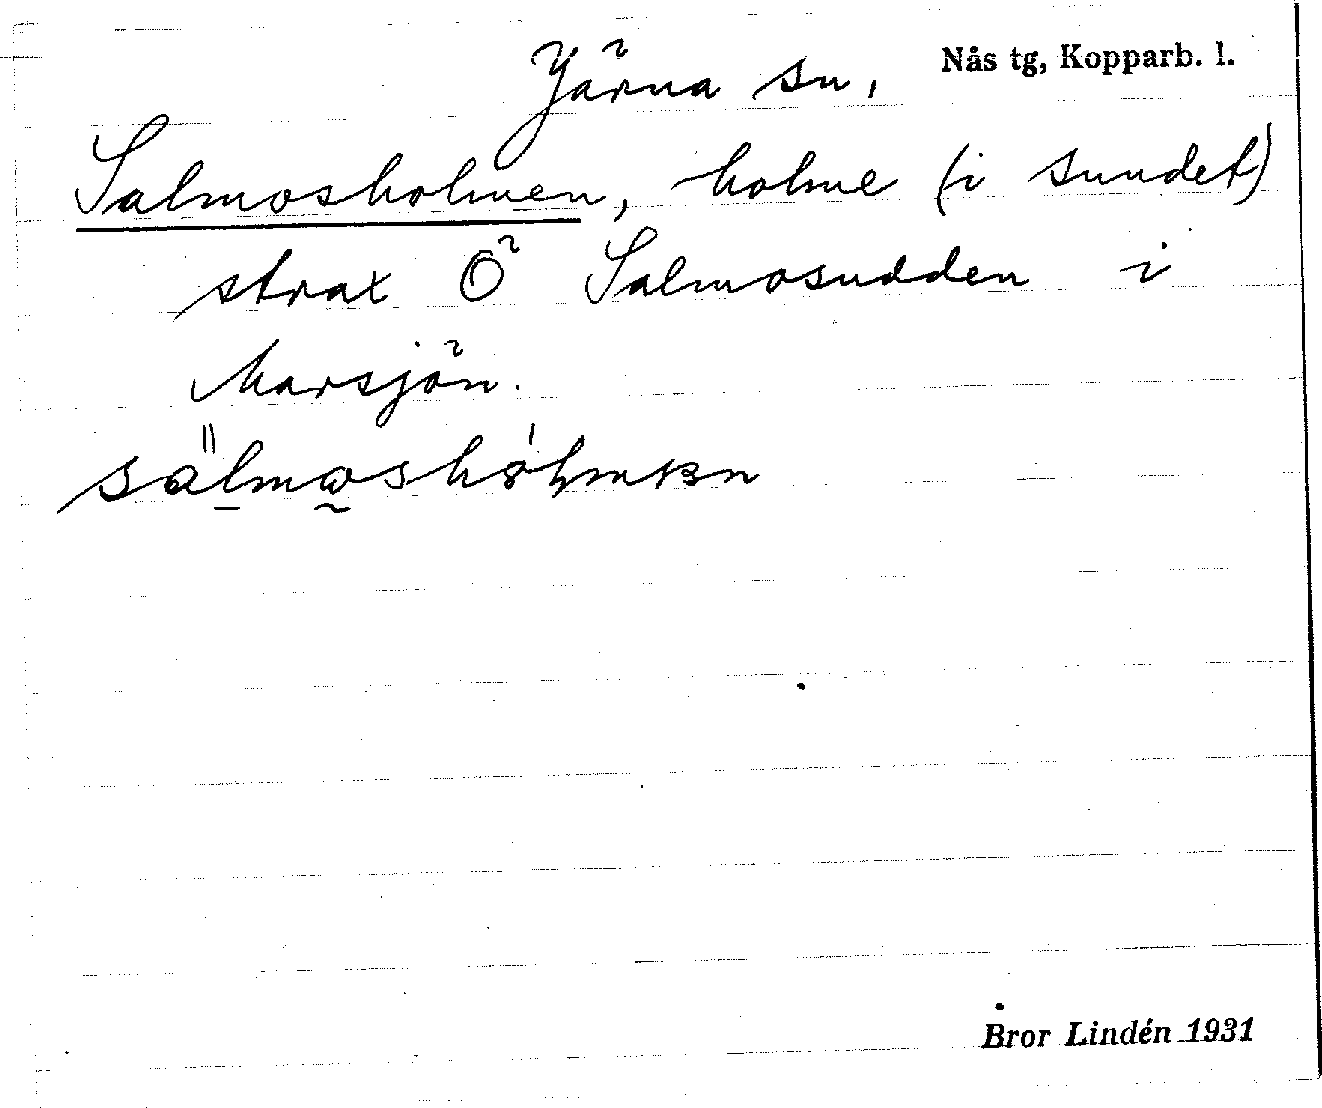 Järna sn, Nås tg, Kopparb. l.
Salmosholmen, holme (i sundet)
strax Ö Salmosudden i
Marsjön.
Bror Lindén 1931